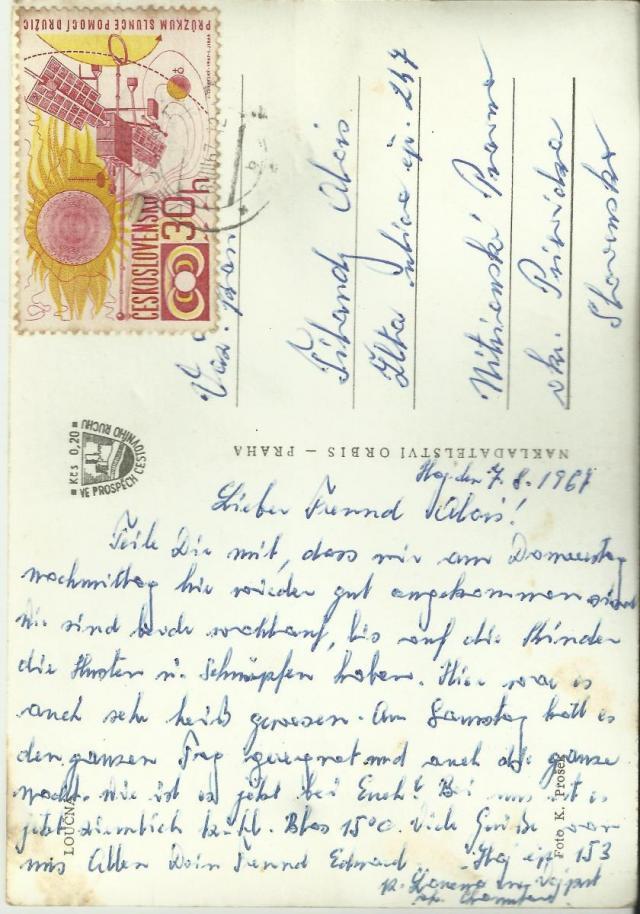 PRŮZKUM SLUNCE POMOCÍ DRUŽIC
ČESKOSLOVENSKO
30h
Vás. Pán
Alois
čp. 247
Nitrianské Pravno
okr. Prievidza
Slovensko
Kčs 0,20
VE PROSPĚCH CESTOVNÍHO RUCHU
NAKLADATELSTVÍ ORBIS – PRAHA
Háj den 7.8.1967
Lieber Freund Alois!
Teile Dir mit, dass wir am Donnerstag
nachmittag hir wieder gut angekommen sind
Wir sind beide wohlauf, bis auf die Kinder
die Husten u. Schnupfen haben. Hier war es
auch sehr heiß gewesen. Am Samstag hatt es
den ganzen Tag geregnet und auch die ganze
nacht. wie ist es jetzt bei Euch? Bei uns ist es
jetzt ziemlich kühl. Blos 15°C. Viele Grüße von
uns Allen Dein Freund Eduard Háj čp 153
p. Loučná Vejprt
LOUČNÁ
Foto K. Prošek